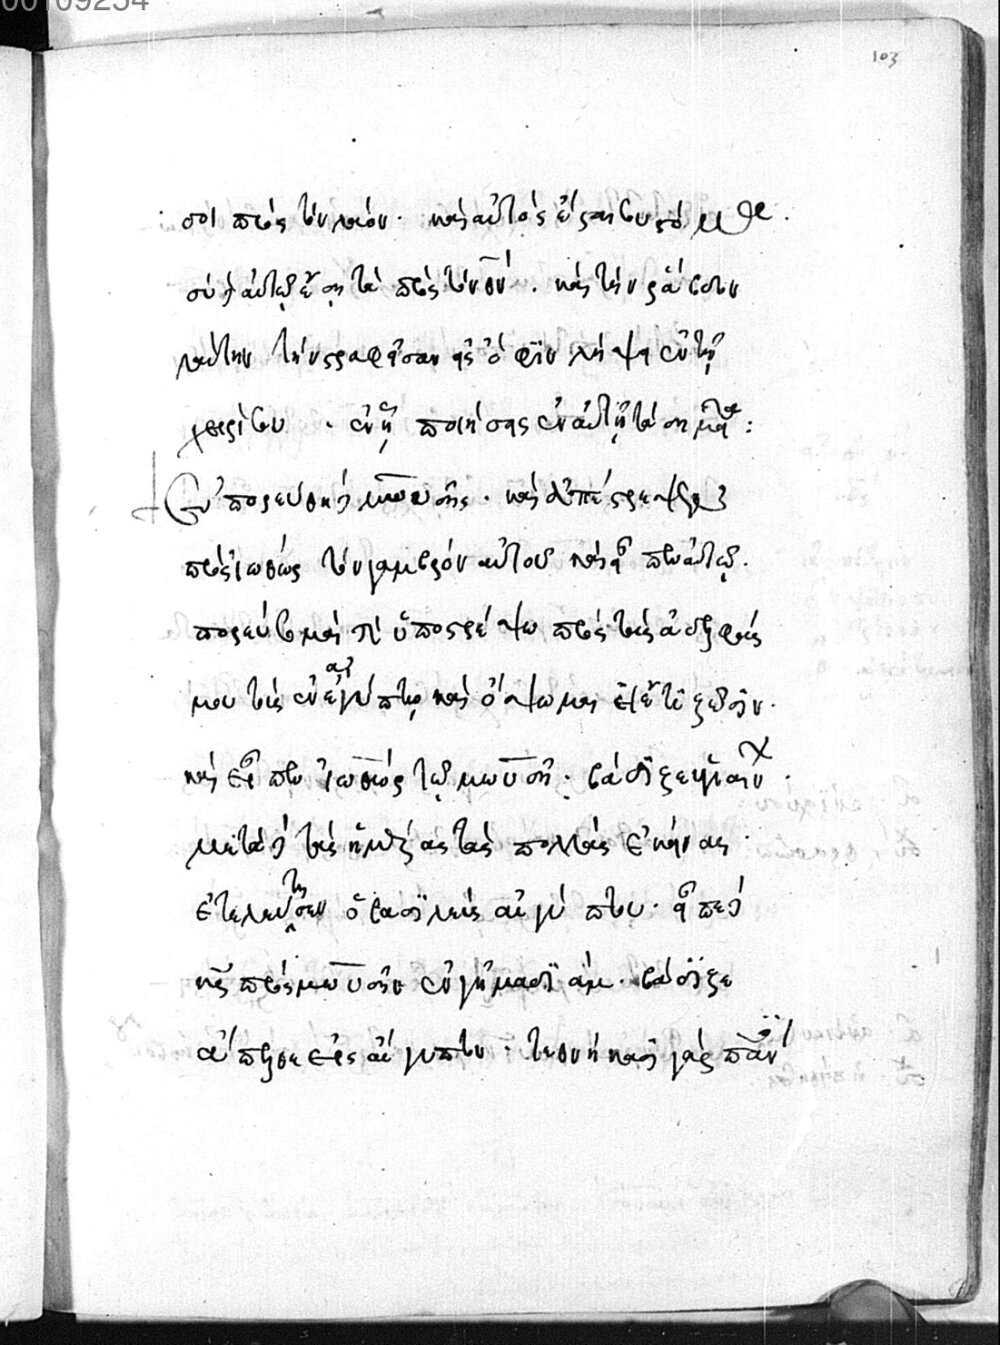 00109254
103
σοι πρὸς τὸν λαόν· καὶ αὐτὸς ἔσται σου στόμα·
σὺ δὲ αὐτῷ ἔσῃ τὰ πρὸς τὸν θν· καὶ τὴν ῥάβδον
ταύτην τὴν στραφεῖσαν εἰς ὄφιν λήψῃ ἐν τῇ
χειρί σου· ἐν ᾗ ποιήσεις ἐν αὐτῇ τὰ σημεῖα:
Ἐπορεύθη δὲ μωυσῆς· καὶ ἀπέστρεψε
πρὸς ἰωθὼρ τὸν γαμβρὸν αὐτοῦ καὶ εἶπεν αὐτῷ·
πορεύσομαι καὶ ὑποστρέψω πρὸς τοὺς ἀδελφούς
μου τοὺς ἐν αἰγύπτῳ καὶ ὄψομαι εἰ ἔτι ζῶσιν·
καὶ εἶπεν ἰωθὼρ τῷ μωυσῇ· βάδιζε ὑγιαίνων·
μετὰ δὲ τὰς ἡμέρας τὰς πολλὰς ἐκείνας
ἐτελεύτησεν ὁ βασιλεὺς αἰγύπτου· εἶπε δὲ
κς πρὸς μωυσῆν ἐν γῇ μαδιάμ· βάδιζε
ἄπελθε εἰς αἴγυπτον· τεθνήκασι γὰρ πάντες